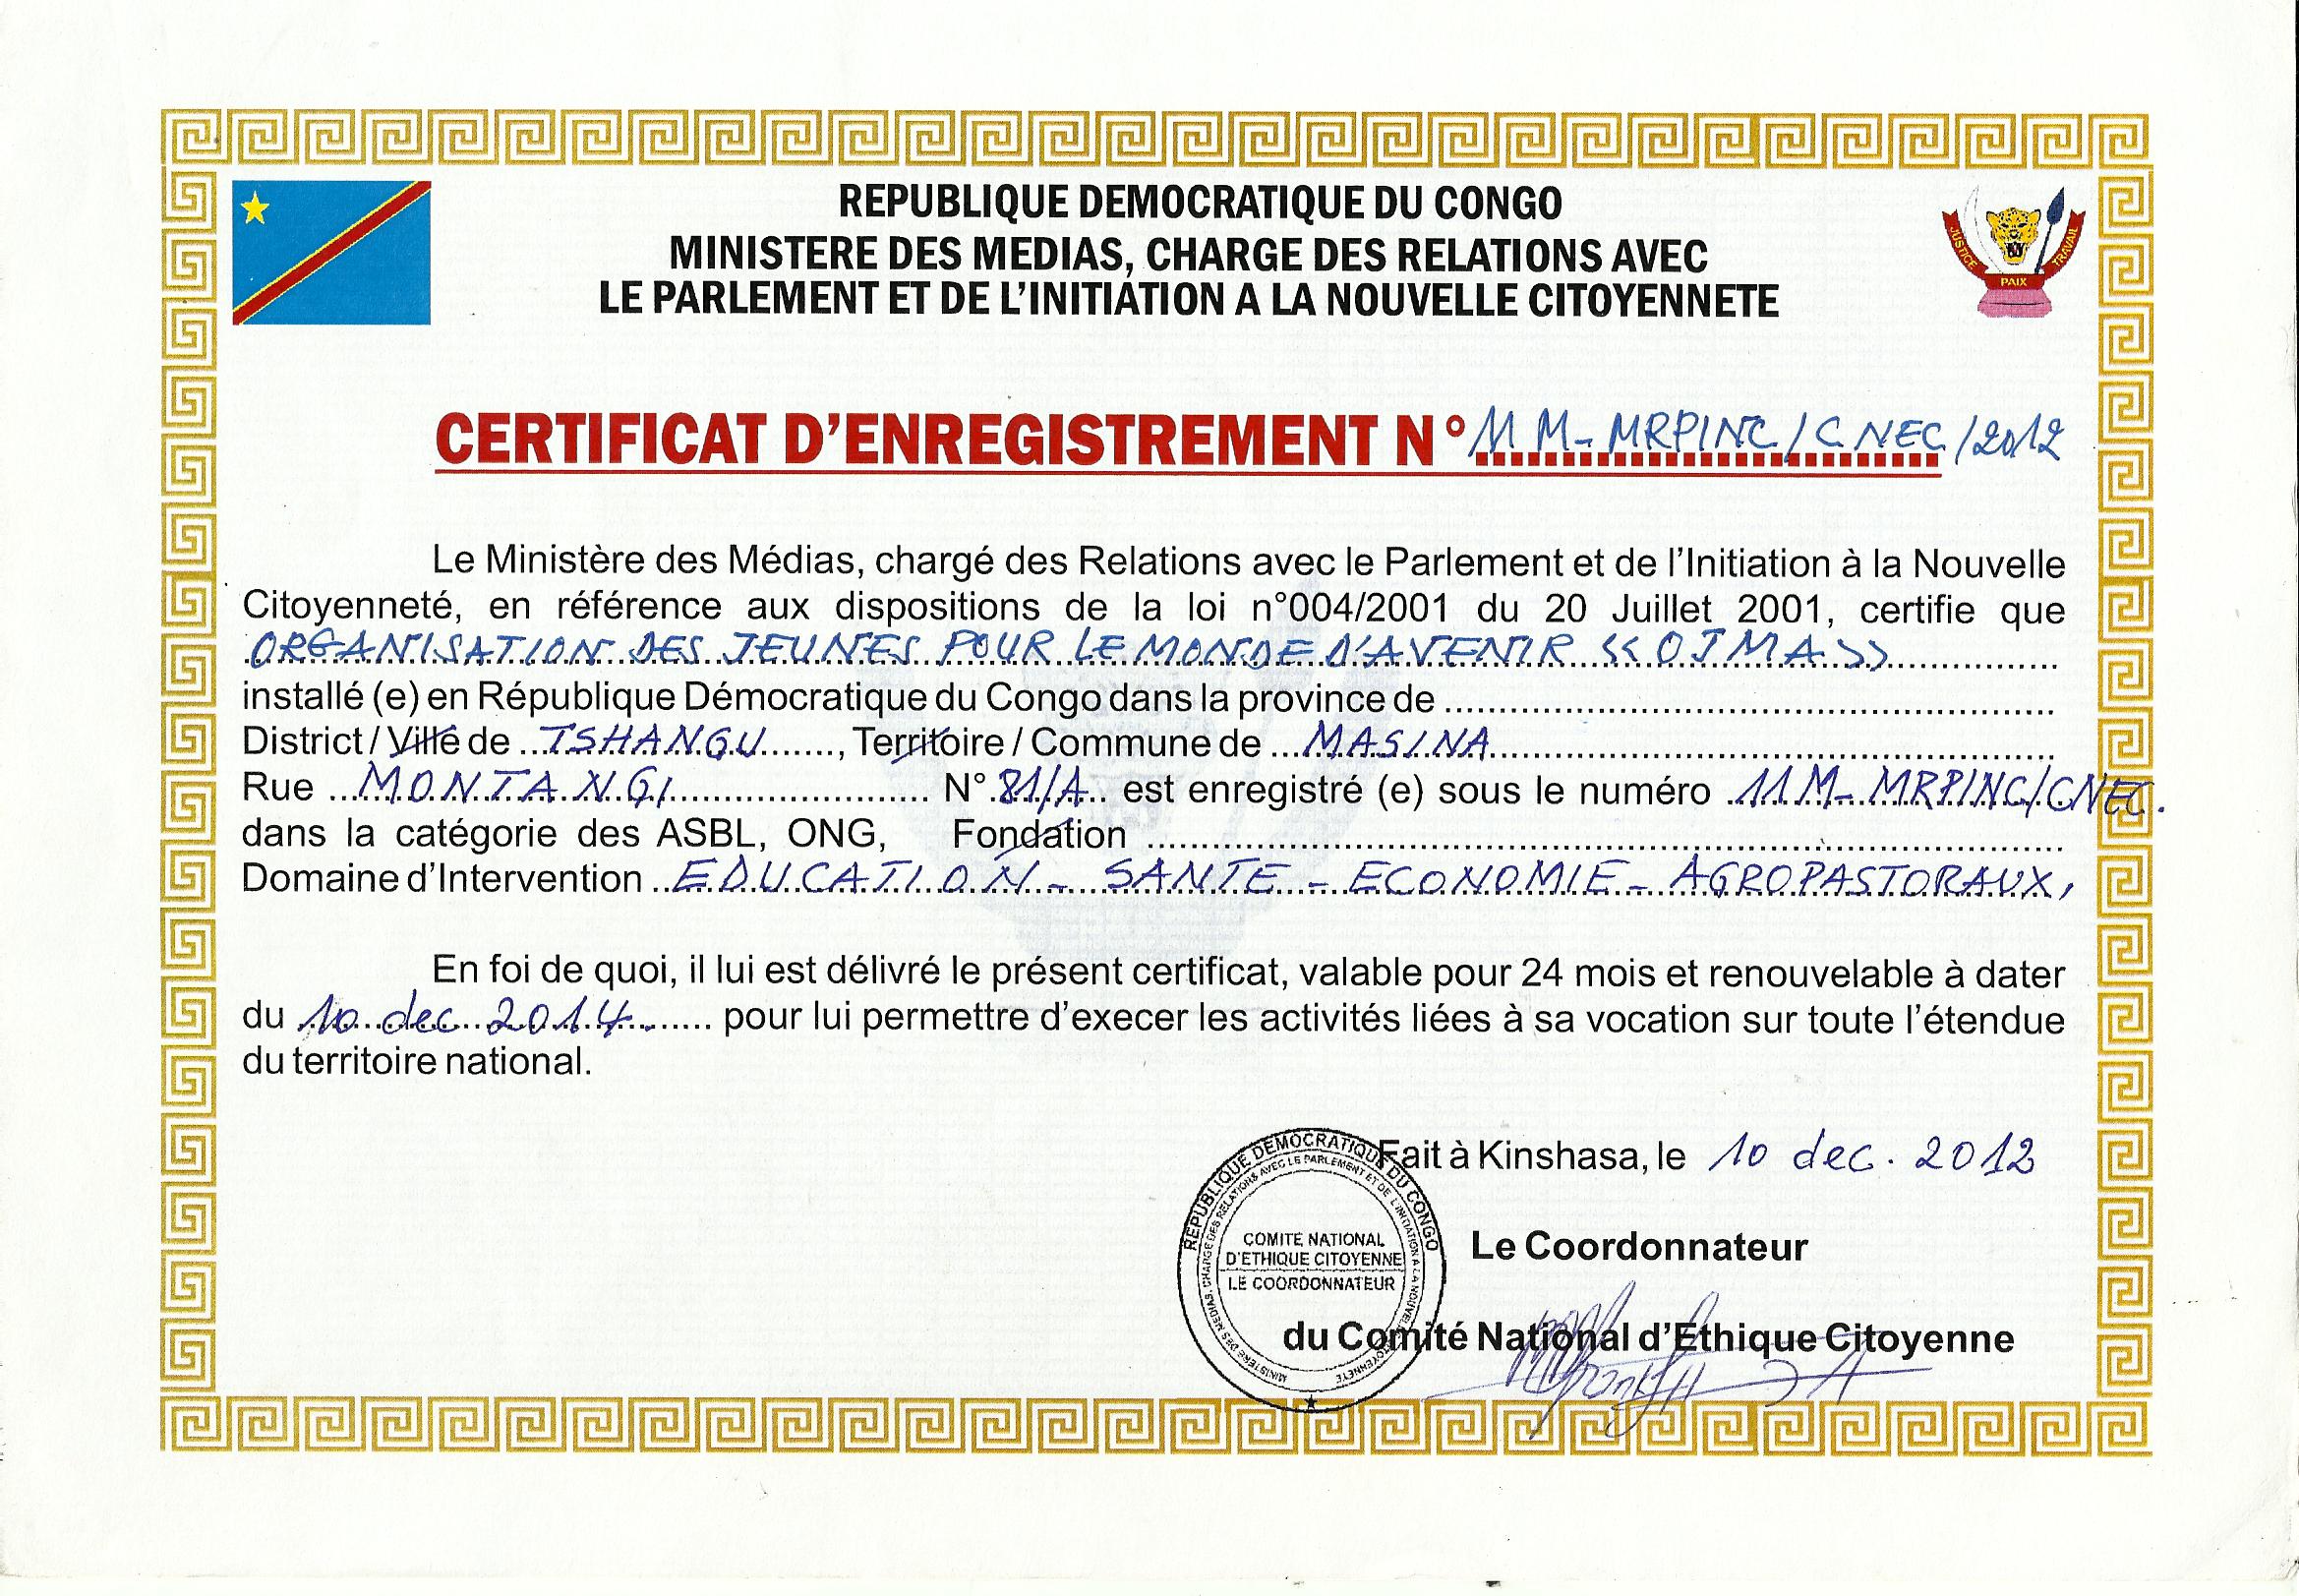 REPUBLIQUE DEMOCRATIQUE DU CONGO
MINISTERE DES MEDIAS, CHARGE DES RELATIONS AVEC
LE PARLEMENT ET DE L'INITIATION A LA NOUVELLE CITOYENNETE
JUSTICE PAIX TRAVAIL
CERTIFICAT D'ENREGISTREMENT N° 11 M-MRPINC/CNEC/2012
Le Ministère des Médias, chargé des Relations avec le Parlement et de l'Initiation à la Nouvelle
Citoyenneté, en référence aux dispositions de la loi n°004/2001 du 20 Juillet 2001, certifie que
ORGANISATION DES JEUNES POUR LE MONDE D'AVENIR << OJMA >>
installé (e) en République Démocratique du Congo dans la province de
District / Ville de TSHANGU, Territoire / Commune de MASINA
Rue MONTANGI N° 81/A est enregistré (e) sous le numéro 11M-MRPINC/CNEC.
dans la catégorie des ASBL, ONG, Fondation
Domaine d'Intervention EDUCATION - SANTE - ECONOMIE - AGROPASTORAUX,
En foi de quoi, il lui est délivré le présent certificat, valable pour 24 mois et renouvelable à dater
du 10 dec 2014. pour lui permettre d'execer les activités liées à sa vocation sur toute l'étendue
du territoire national.
Fait à Kinshasa, le 10 dec. 2012
REPUBLIQUE DEMOCRATIQUE DU CONGO
MINISTERE DES MEDIAS, CHARGE DES RELATIONS AVEC LE PARLEMENT ET DE L'INITIATION A LA NOUVELLE CITOYENNETE
COMITE NATIONAL
D'ETHIQUE CITOYENNE
LE COORDONNATEUR
Le Coordonnateur
du Comité National d'Ethique Citoyenne